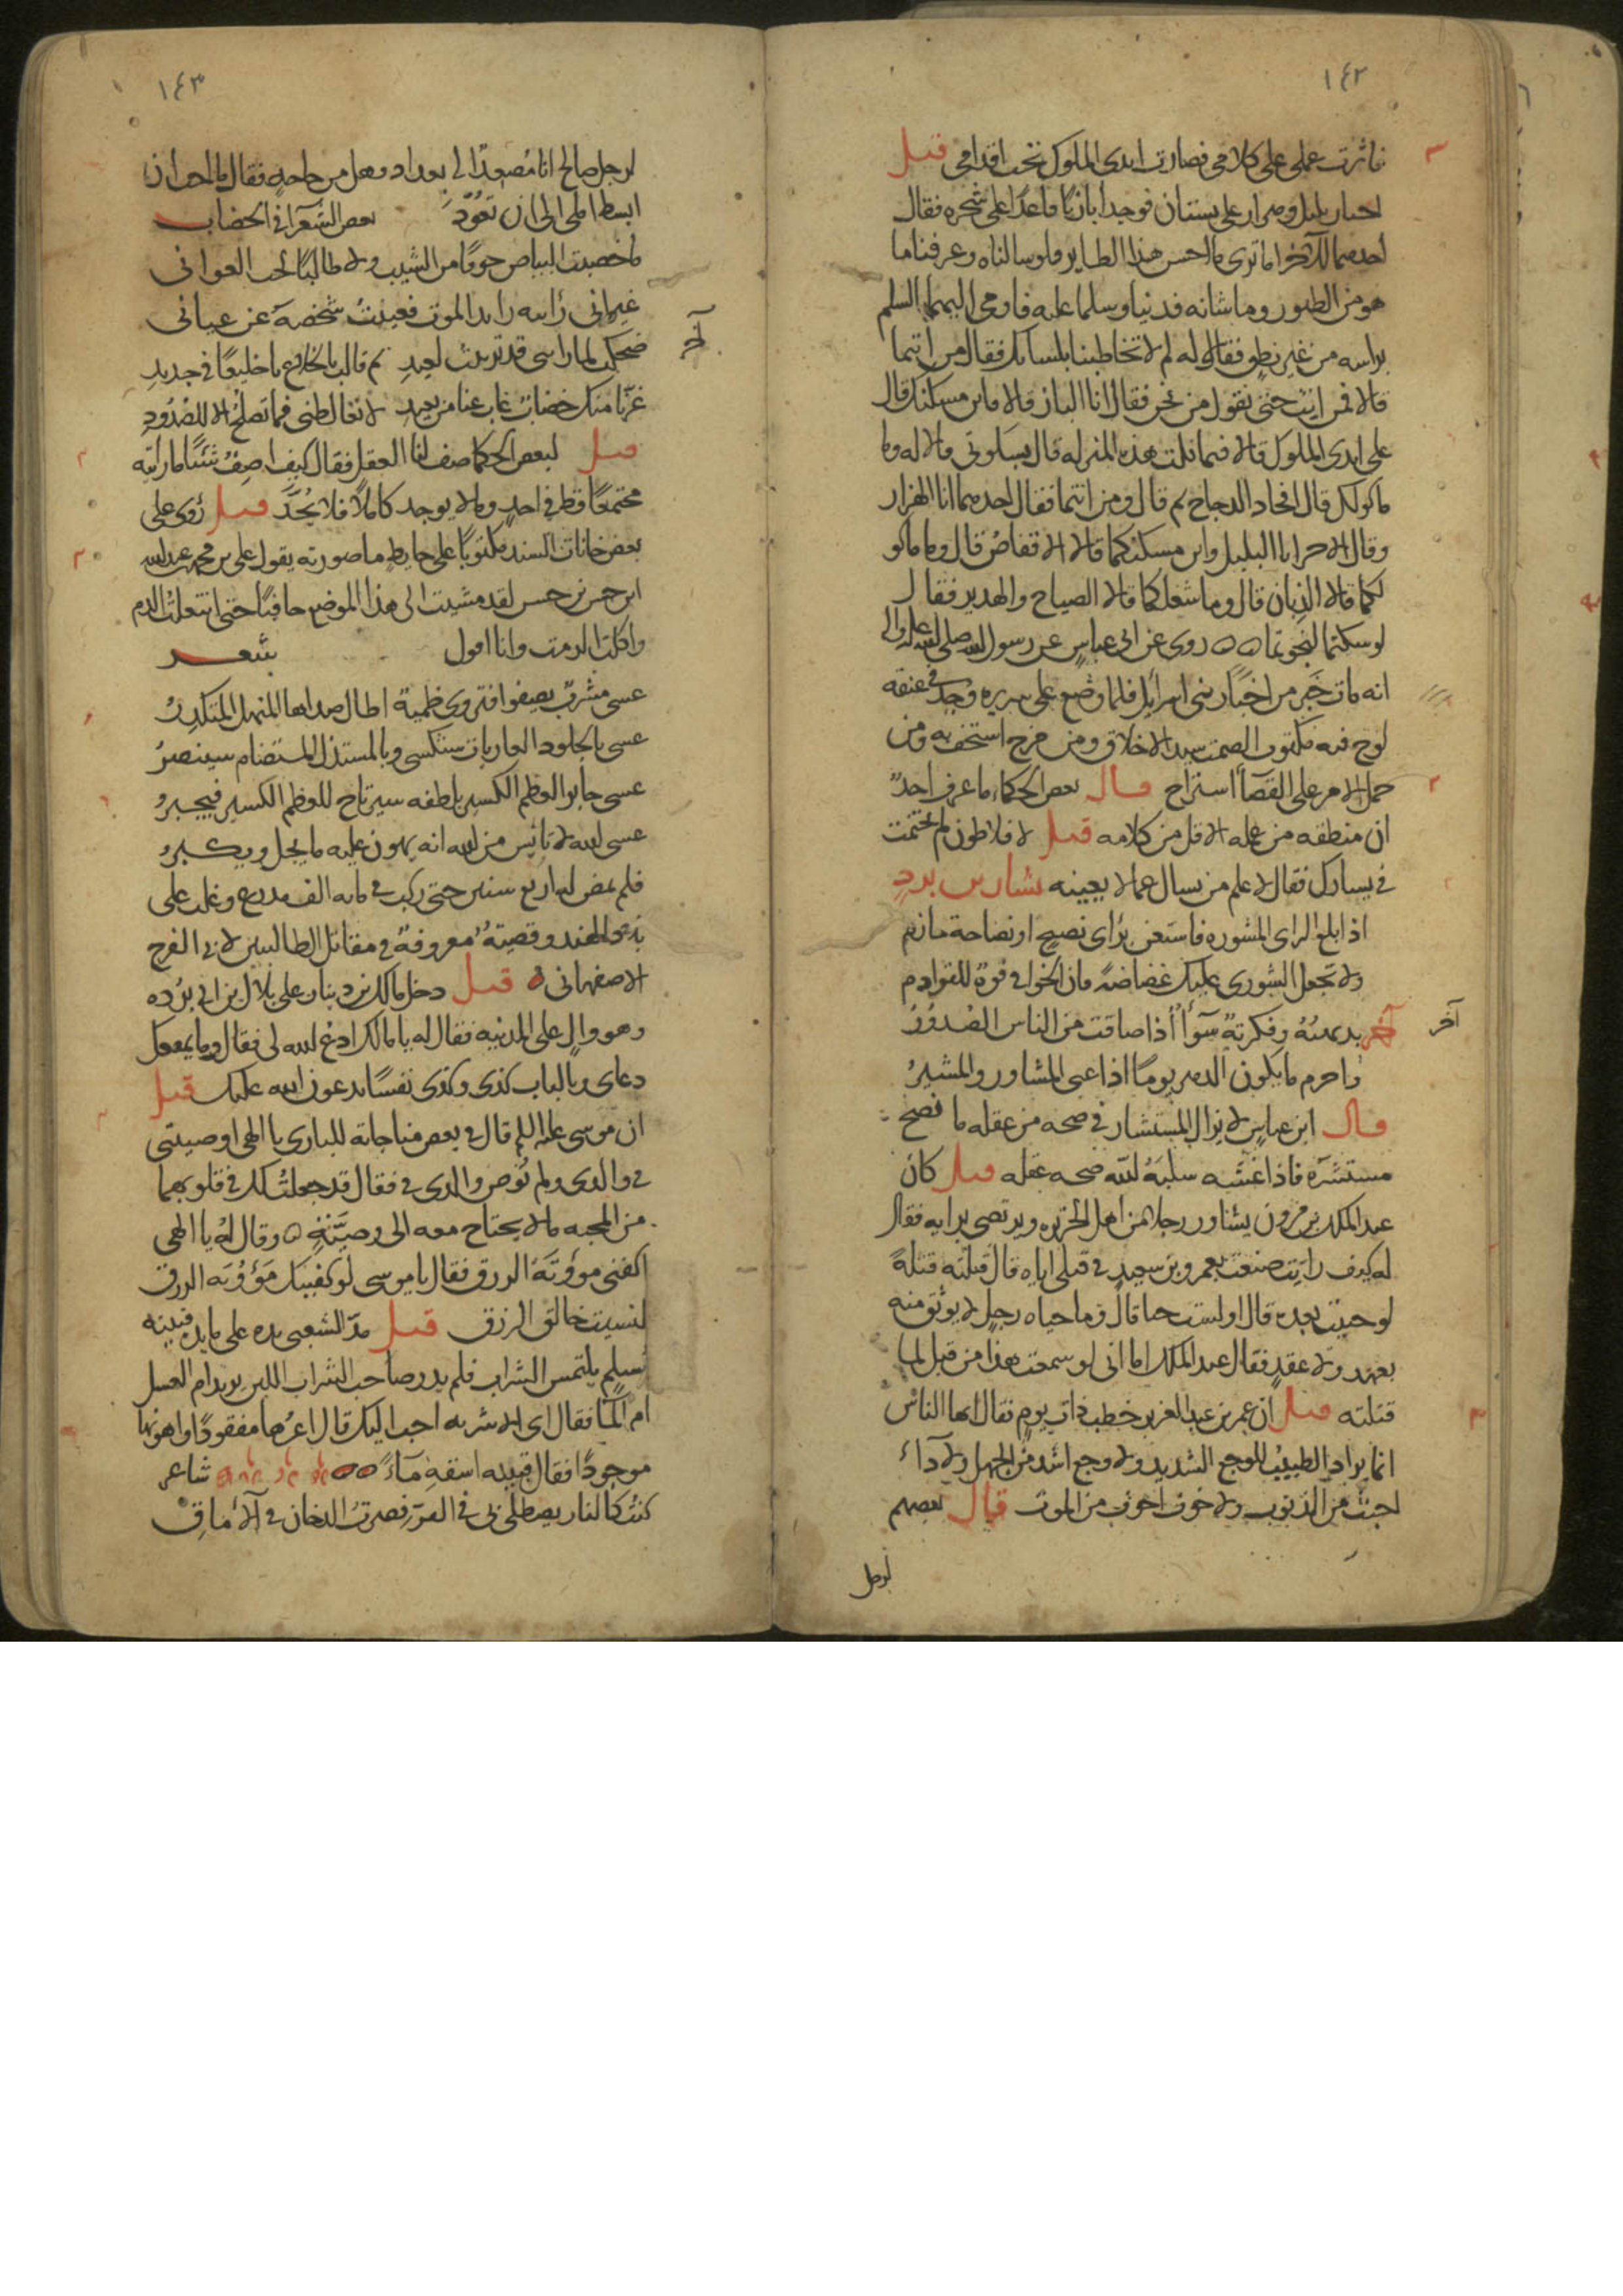 ١٤٢
فاثرت عملي على كلامي فصارت ايدي الملوك تحت اقدامي قيل
اجتاز بلبل وهزار على بستان فوجدا بازيا قاعدا على شجره فقال
احدهما للاخر اما ترى ما احسن هذا الطاير فلو سالناه وعرفنا ما
هو من الطيور وما شانه فدنيا وسلما عليه فاومى اليهما السلم
براسه من غير نطق فقالا له لم لا تخاطبنا بلسانك فقال من انتما
قالا فمن انت حتى تقول من نحن فقال انا الباز قالا فاين مسكنك قال
على ايدي الملوك قالا فبما نلت هذه المنزله قال بسكوتي قالا له وما
ماكولك قال افخاد الدجاج ثم قال ومن انتما فقال احدهما انا الهزار
وقال الاخر انا البلبل واين مسكنكما قالا الاقفاص قال وما ماكو
لكما قالا الذبان قال وما شغلكما قالا الصياح والهدير فقال
لو سكتما لنجوتما روى عن ابن عباس عن رسول الله صلى الله عليه واله
انه مات حبر من احبار بني اسرايل فلما وضع على سريره وجد في عنقه
لوح فيه مكتوب الصمت سيد الاخلاق ومن مزح استخف به ومن
حمل الامر على القضآ استراح قال بعض الحكماء ما عرف احد
ان منطقه من عمله الا قل من كلامه قيل لافلاطون لم تختمت
في يسارك فقال لاعلم من يسال عما لا يعنيه بشار بن برد
اذا بلغ الراي المشوره فاستعن براي نصيح او نصاحة حازم
ولا تجعل الشورى عليك غضاضة فان الخوافي قوة للقوادم
آخر بديهته وفكرته سوآ اذا ضاقت من الناس الصدور
آخر
واحزم ما يكون الدهر يوما اذا عي المشاور والمشير
قال ابن عباس لا يزال المستشار في صحه من عقله ما نصح
مستشيره فاذا غشه سلبه الله صحه عقله قيل كان
عبد الملك بن مرون يشاور رجلا من اهل الجزيره ويرتضي برايه فقال
له كيف رايت صنعت بعمرو بن سعيد في قتلي اياه قال قتلته قتلة
لو حييت بعده قال اولست حيا قال وما حياه رجل لا يوثق منه
بعهد ولا عقد فقال عبد الملك اما اني لو سمعت هذا من قبل لما
قتلته قيل ان عمر بن عبد العزيز خطب ذات يوم فقال ايها الناس
انما يراد الطبيب للوجع الشديد ولا وجع اشد من الجهل ولا داء
اخبث من الذنوب ولا خوف اخوف من الموت قال بعضهم
لرجل
١٤٣
لرجل صالح انا مصعدا الى بغداد وهل من حاجه فقال ما احب ان
ابسط املي الى ان تعود بعض الشعرآ في الخضاب
ما خضبت البياض خوفا من الشيب ولا طالبا لحب الغواني
غير اني رايته رايد الموت فغيبت شخصه عن عياني
آخر
ضحكت لما راتني قد تزينت لعيد ثم قالت بالخلاع يا خليعا في جديد
غرنا منك خضاب غاب عنا من بعيد لا تغالطني فما تصلح الا للصدود
قيل لبعض الحكما صف لنا العقل فقال كيف اصف شئيا ما رايته
مجتمعا قط في احد وما لا يوجد كاملا فلا يحد قيل رؤي على
بعض خانات السند مكتوبا على حايط ما صورته يقول علي بن محمد بن عبد الله
ابن حسن بن حسن لقد مشيت الى هذا الموضع حافيا حتى انتعلت الدم
واكلت الرمت وانا اقول شعر
عسى مشرب يصفو فتروى ظمية اطال صداها المنهل المتكدر
عسى بالجلود العاريات ستكسى وبالمستذل المستضام سينصر
عسى جابر العظم الكسير بلطفه سيرتاح للعظم الكسير فيجبر
عسى الله لا تايس من الله انه يهون عليه ما يجل ويكبر
فلم يمض له اربع سنين حتى ركب في مايه الف مدرع وغلب على
وقصته معروفة في مقاتل الطالبيين لابي الفرج
الاصفهاني قيل دخل مالك بن دينار على بلال بن ابي برده
وهو وال على المدينه فقال له يا مالك ادع الله لي فقال وما يفعل
دعاي وبالباب كذى وكذى نفسا يدعون الله عليك قيل
ان موسى عليه السلم قال في بعض مناجاته للباري يا الهي اوصيتني
في والدي ولم توص والدي في فقال قد جعلت لك في قلوبهما
من المحبه ما لا يحتاج معه الى وصيته وقال له يا الهي
اكفني موؤنة الرزق فقال يا موسى لو كفيتك موؤنه الرزق
لنسيت خالق الرزق قيل مد الشعبي يده على مايده قتيبه
بن مسلم يلتمس الشراب فلم يدر صاحب الشراب اللبن يريد ام العسل
ام المآ فقال اي الاشربه احب اليك قال اعزها مفقودا واهونها
موجودا فقال قتيبه اسقه مآء شاعر
كنت كالنار يصطلى بي في القر فصرت الدخان في الآماق